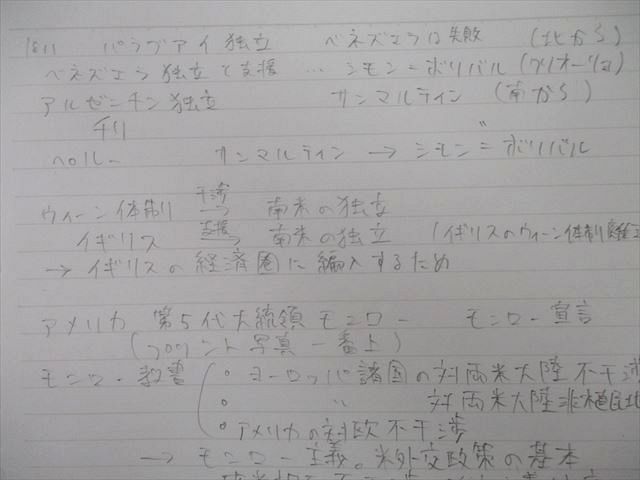 1811 パラグアイ独立 ベネズエラは失敗 (北から)
ベネズエラ独立を支援 … シモン=ボリバル (クリオーリョ)
アルゼンチン独立 サンマルティン (南から)
チリ 〃
ペルー サンマルティン → シモン=ボリバル
ウィーン体制 干渉→ 南米の独立
イギリス 支援→ 南米の独立 (イギリスのウィーン体制離
→ イギリスの経済圏に編入するため
アメリカ 第5代大統領モンロー モンロー宣言
(プリント写真一番上)
モンロー教書 ○ ヨーロッパ諸国の対両米大陸不干渉
○ 〃 対両米大陸非植民地
○ アメリカの対欧不干渉
→ モンロー主義。米外交政策の基本